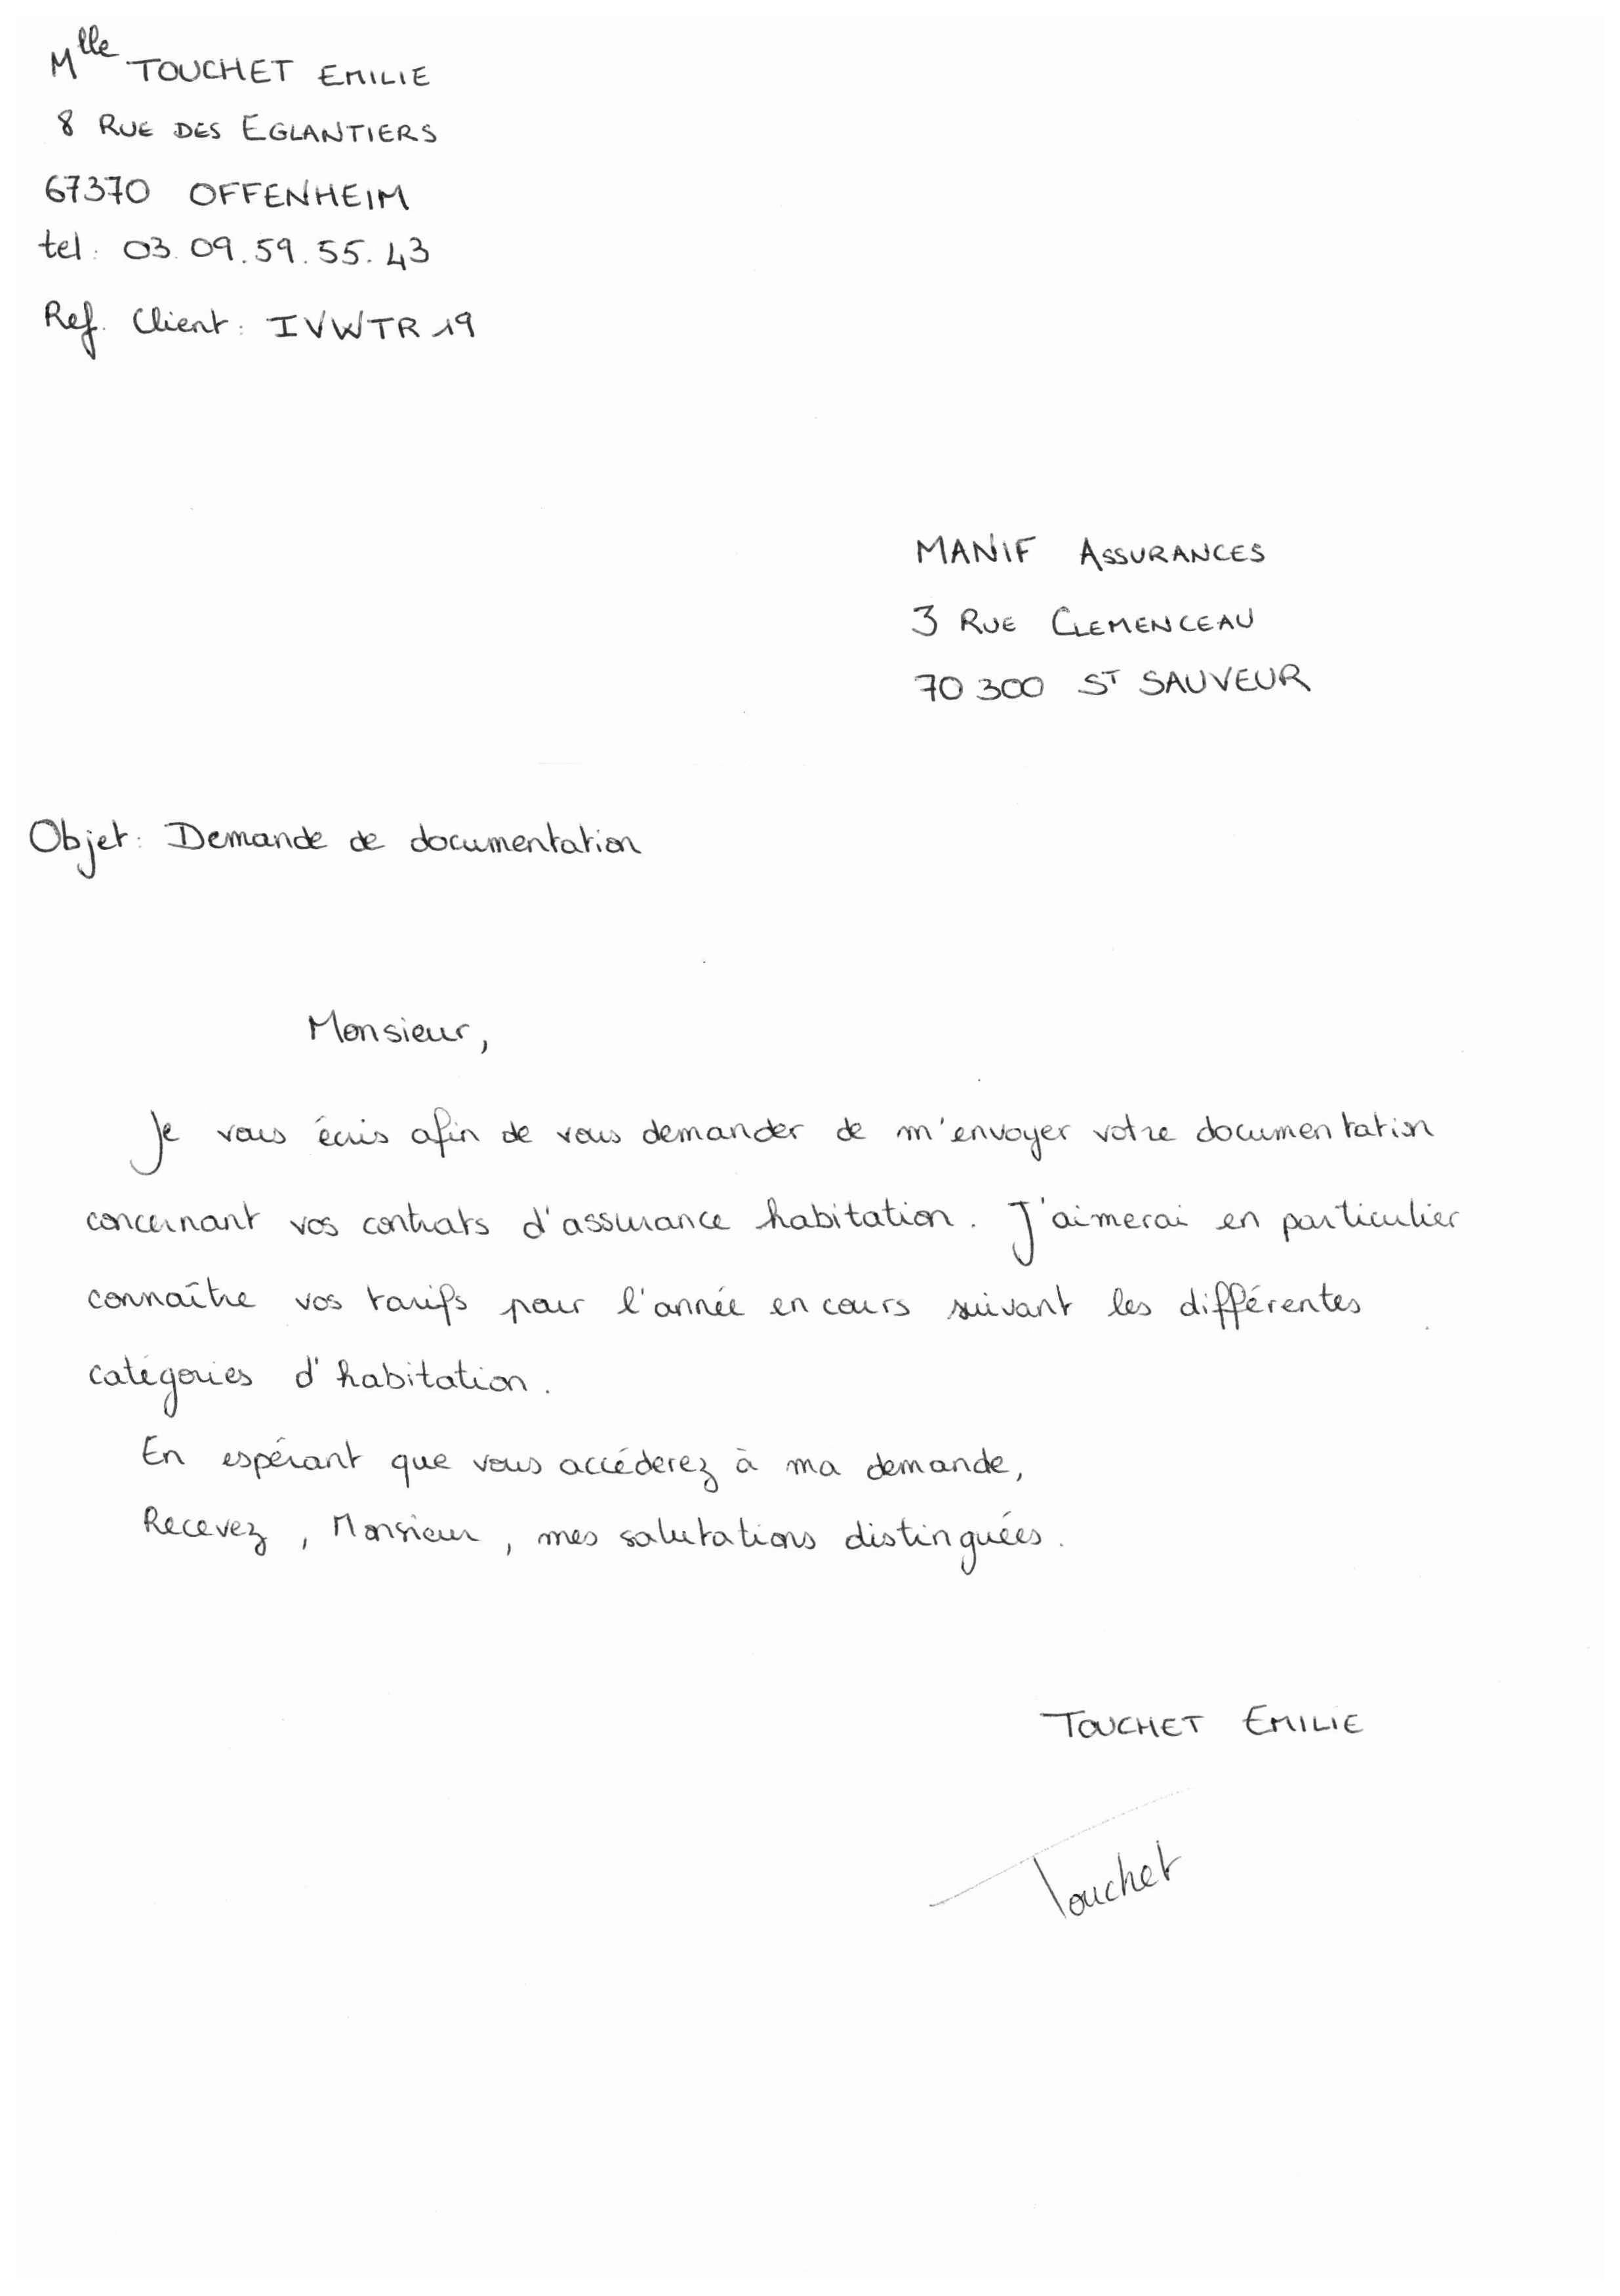 Mlle TOUCHET EMILIE
8 RUE DES EGLANTIERS
67370 OFFENHEIM
tel: 03.09.59.55.43
Ref. Client: IVWTR19
MANIF ASSURANCES
3 RUE CLEMENCEAU
70300 ST SAUVEUR
Objet: Demande de documentation
Monsieur,
Je vous écris afin de vous demander de m'envoyer votre documentation
concernant vos contrats d'assurance habitation. J'aimerai en particulier
connaître vos tarifs pour l'année en cours suivant les différentes
catégories d'habitation.
En espérant que vous accéderez à ma demande,
Recevez, Monsieur, mes salutations distinguées.
TOUCHET EMILIE
Touchet